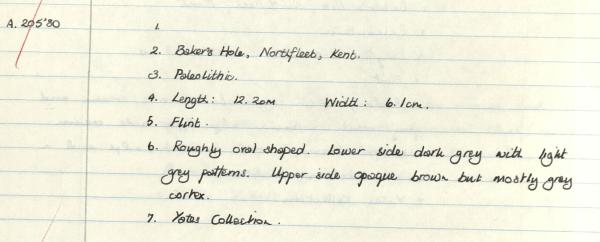 A. 205'80
1.
2. Baker's Hole, Northfleet, Kent.
3. Paleolithic.
4. Length: 12.2cm Width: 6.1cm.
5. Flint.
6. Roughly oval shaped. Lower side dark grey with light
grey patterns. Upper side opaque brown but mostly grey
cortex.
7. Yates Collection.